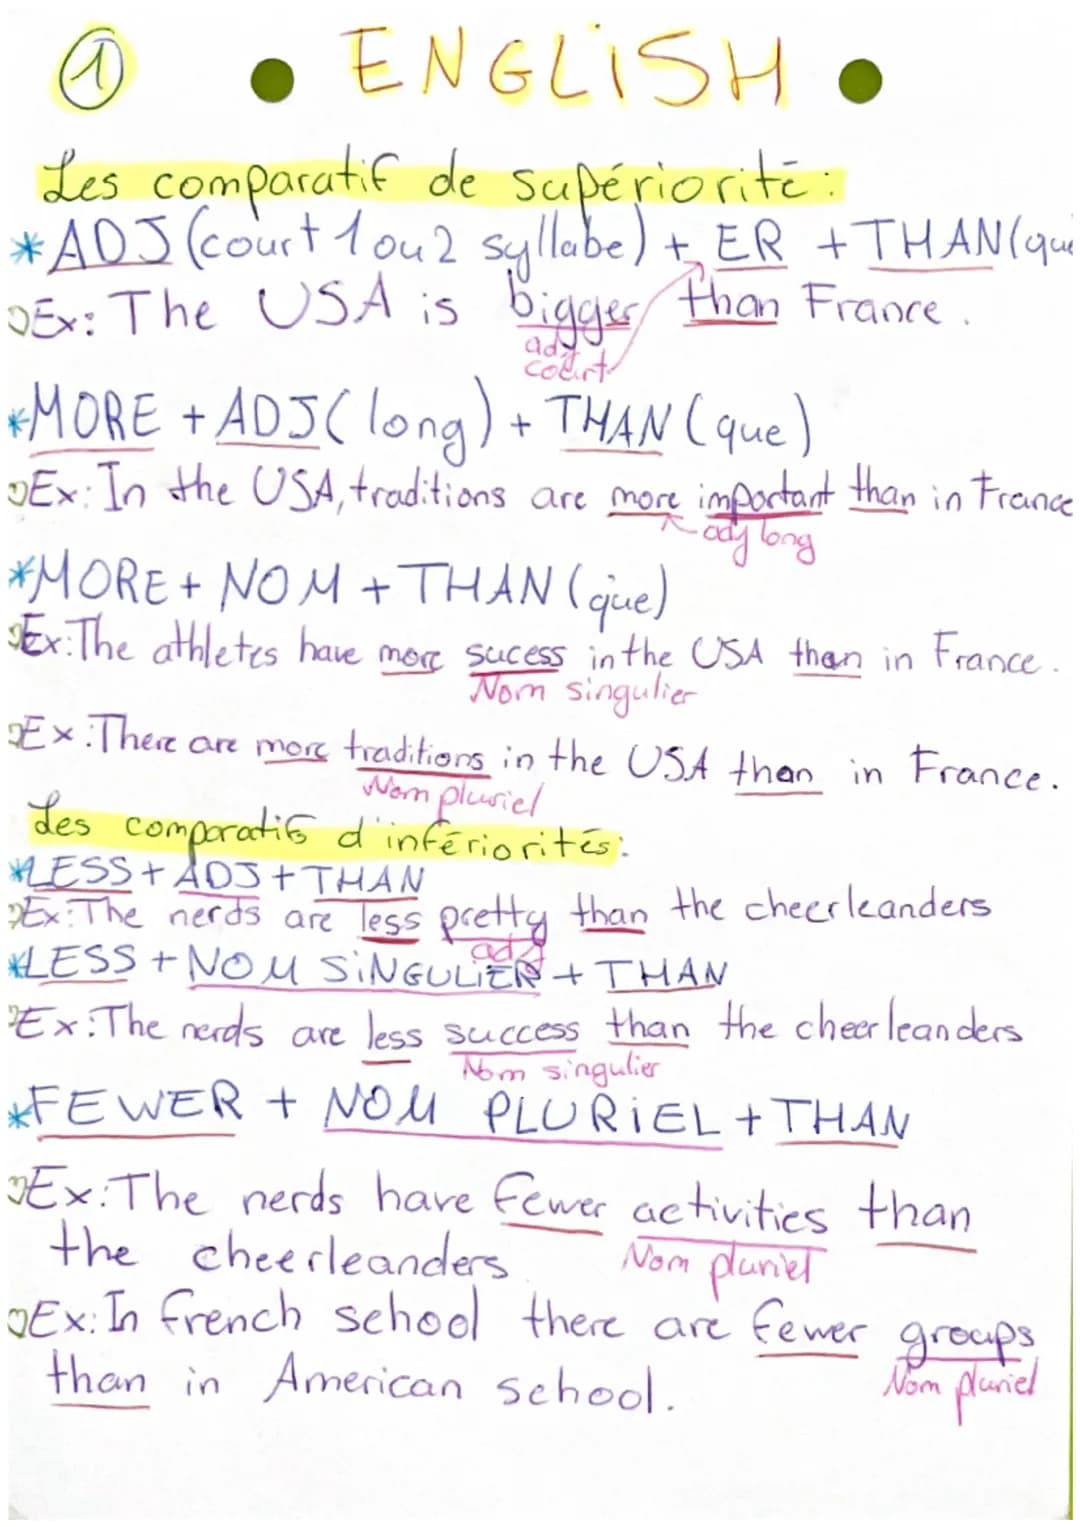 1 • ENGLiSH •
Les comparatif de supériorité :
*ADJ (court 1 ou 2 syllabe) + ER + THAN (que
Ex: The USA is bigger than France.
adj
court
*MORE + ADJ (long) + THAN (que)
Ex: In the USA, traditions are more important than in France
adj long
*MORE + NOM + THAN (que)
Ex: The athletes have more sucess in the USA than in France.
Nom singulier
Ex: There are more traditions in the USA than in France.
Nom pluriel
Les comparatifs d'infériorités:
*LESS + ADJ + THAN
Ex: The nerds are less pretty than the cheerleanders
adj
*LESS + NOM SiNGULiER + THAN
Ex: The nerds are less success than the cheerleanders
Nom singulier
*FEWER + NOM PLURiEL + THAN
Ex: The nerds have fewer activities than
the cheerleanders
Nom pluriel
Ex: In french school there are fewer groups
than in American school.
Nom pluriel